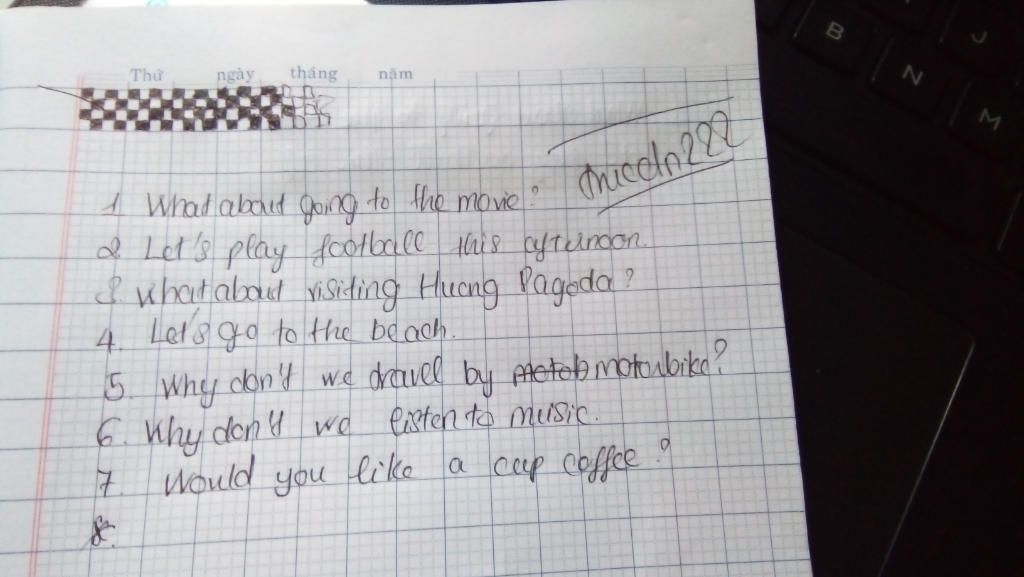 Thứ ngày tháng năm
1 What about going to the movie?
2. Let's play football this afternoon.
3. What about visiting Huong Pagoda?
4. Let's go to the beach.
5. Why don't we travel by motorbike?
6. Why don't we listen to music.
7. Would you like a cup coffee?
8.
B
N
J
M